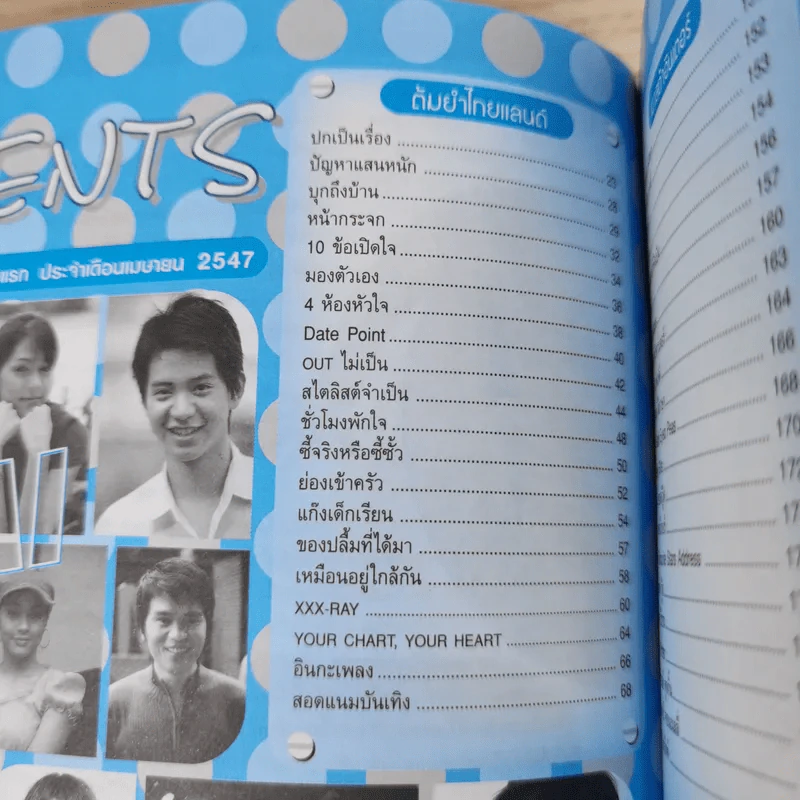 ENTS
แรก ประจำเดือนเมษายน 2547
ต้มยำไทยแลนด์
ปกเป็นเรื่อง
ปัญหาแสนหนัก 25
บุกถึงบ้าน 28
หน้ากระจก 29
10 ข้อเปิดใจ 32
มองตัวเอง 34
4 ห้องหัวใจ 36
Date Point 38
OUT ไม่เป็น 40
สไตลิสต์จำเป็น 42
ชั่วโมงพักใจ 44
ซี้จริงหรือซี้ซั้ว 48
ย่องเข้าครัว 50
แก๊งเด็กเรียน 52
ของปลื้มที่ได้มา 54
เหมือนอยู่ใกล้กัน 57
XXX-RAY 58
YOUR CHART, YOUR HEART 60
อินกะเพลง 64
สอดแนมบันเทิง 66
68
152
153
154
156
157
160
163
164
166
168
170
Stars Address